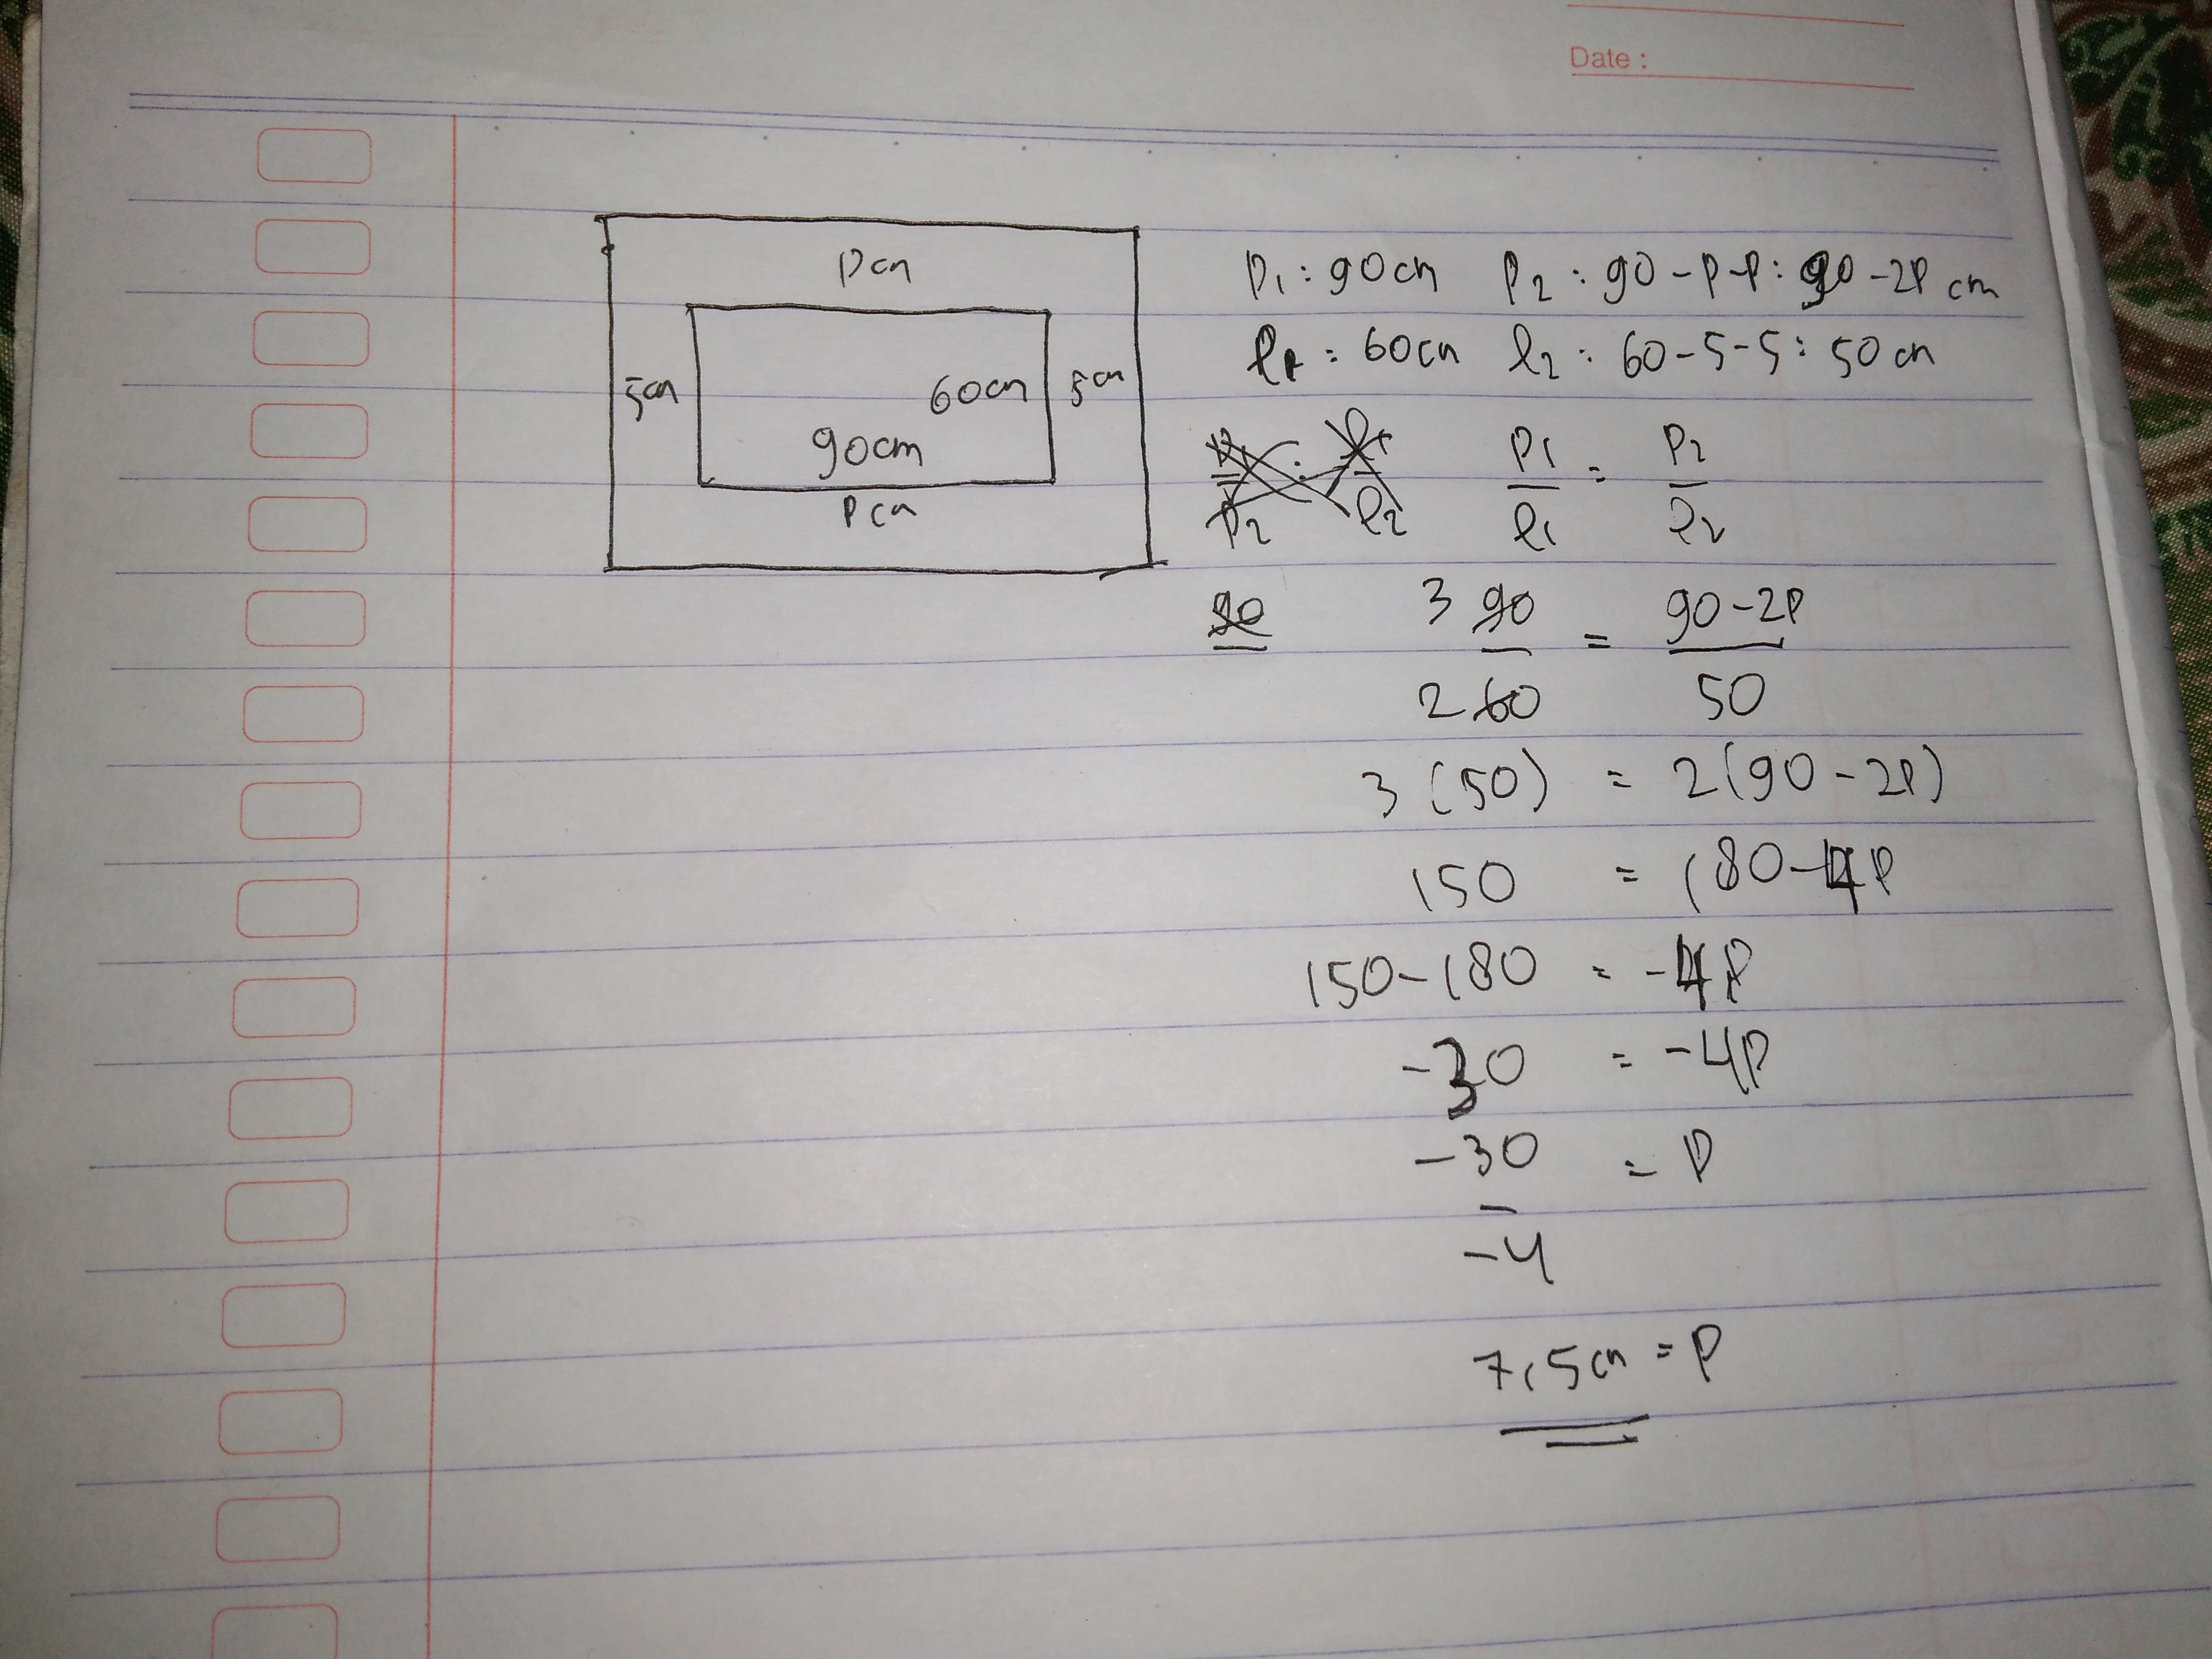 Date :
P cm
5cm
60cm
5cm
90cm
P cm
P₁ : 90cm P₂ : 90-P-P : 90-2P cm
l₁ : 60cm l₂ : 60-5-5 : 50 cm
P₁/l₁ = P₂/l₂
3 90/2 60 = 90-2P/50
3 (50) = 2(90-2P)
150 = 180-4P
150-180 = -4P
-30 = -4P
-30/-4 = P
7,5cm = P